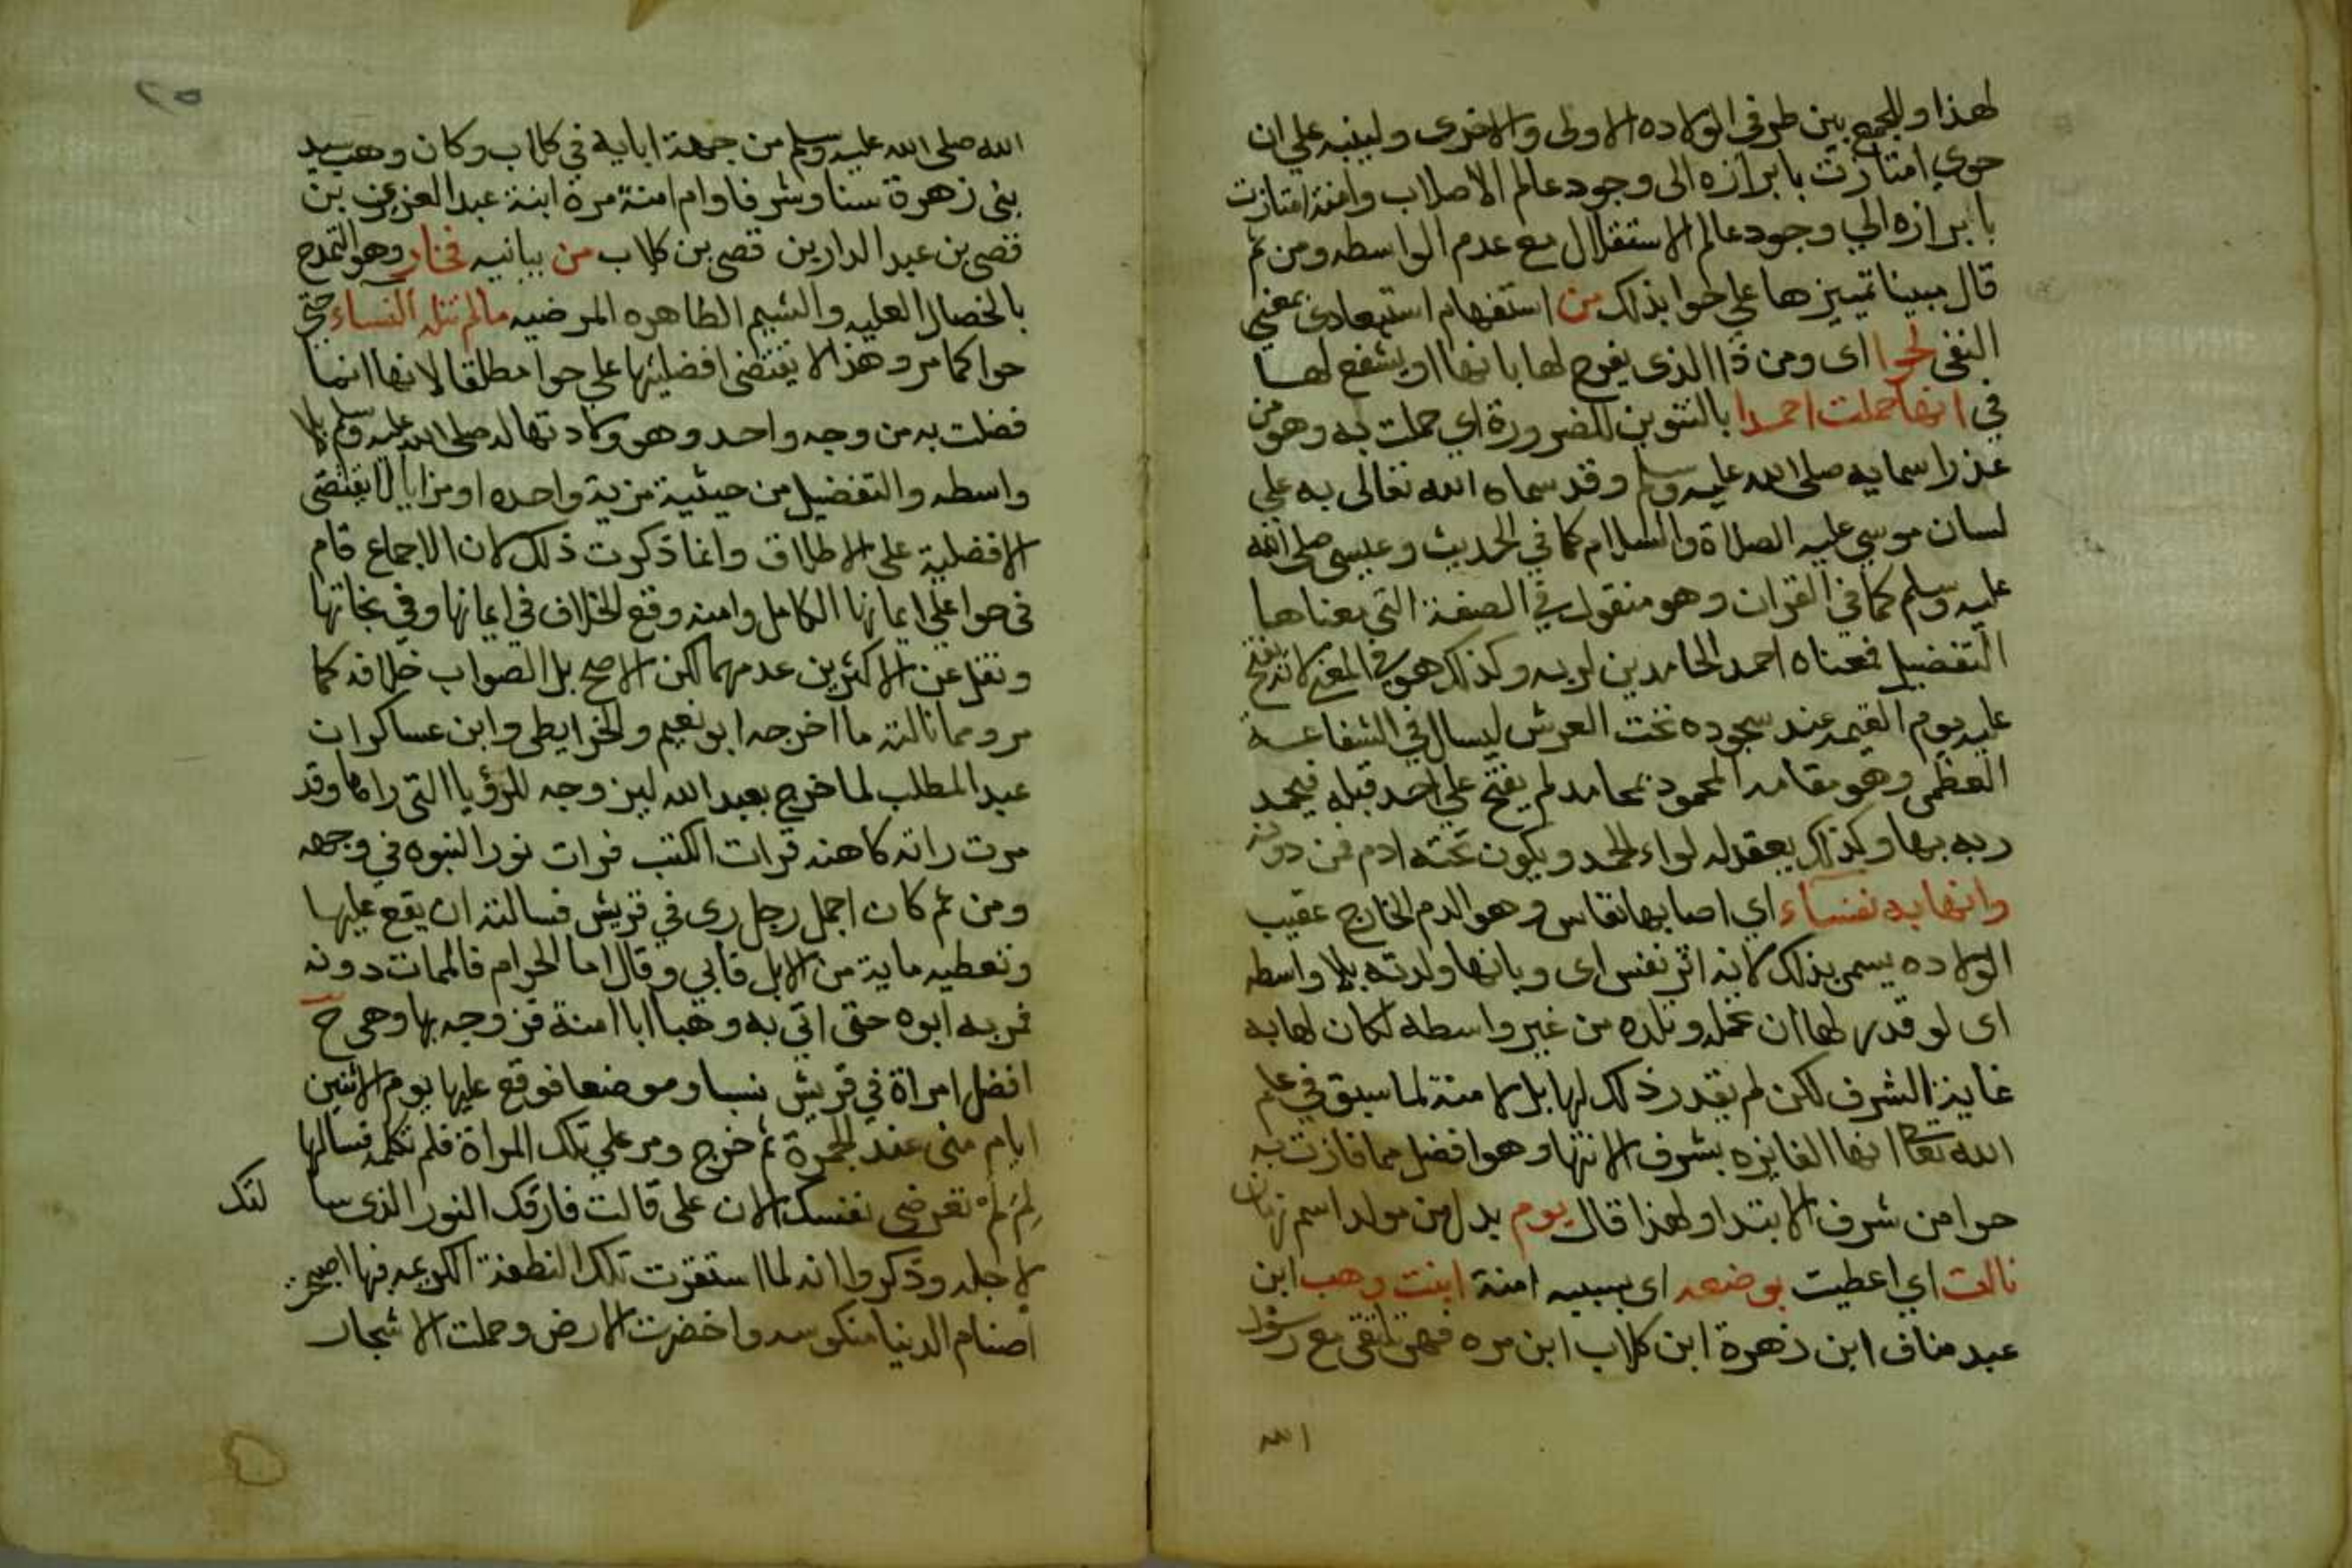 لهذا وللجمع بين طرفي الولاده الاولى والاخرى ولينبه علي ان
حوي امتازت بابرازه الى وجود عالم الاصلاب وامنة امتازت
بابرازه الي وجود عالم الاستقلال مع عدم الواسطه ومن ثم
قال مبينا تمييزها علي حوا بذلك من استفهام استبعادى بمعني
النفى لحوا اى ومن ذا الذى يفرح لها بانها او يشفع لها
في انها حملت احمدا بالتنوين للضرورة اي حملت به وهو من
اسمايه صلى الله عليه وسلم وقد سماه الله تعالى به علي
لسان موسي عليه الصلاة والسلام كما في الحديث وعيسى صلى الله
عليه وسلم كما في القران وهو منقول في الصفة التي معناها
التفضيل فمعناه احمد الحامدين لربه وكذلك هو في المعنى لانه يفتح
عليه يوم القيمه عند سجوده تحت العرش ليسال في الشفاعة
العظمى وهو مقامه المحمود بمحامد لم يفتح علي احد قبله فيحمد
ربه بها وكذلك يعقد له لواء الحمد ويكون تحته ادم فمن دونه
وانها به نفساء اي اصابها نفاس وهو الدم الخارج عقيب
الولاده يسمى بذلك لانه اثر نفس اى وبانها ولدته بلا واسطه
اى لو قدر لها ان تحمل وتلده من غير واسطه لكان لها به
غاية الشرف لكن لم يقدر ذلك لها بل لامنة لما سبق في علم
الله تعا انها الفايزه بشرف الانتها وهو افضل مما فازت به
حوا من شرف الابتدا ولهذا قال يوم بدل من مولد اسم زمان
نالت اي اعطيت بوضعه اى بسببه امنة ابنت وهب ابن
عبد مناف ابن زهرة ابن كلاب ابن مره فهى تلتقى مع رسول
الله
٢٥
الله صلى الله عليه وسلم من جهة ابايه في كلاب وكان وهب سيد
بنى زهرة سنا وشرفا وام امنة مرة ابنة عبد العزى بن
قصى بن عبد الدار بن قصى بن كلاب من بيانيه فخار وهو التمدح
بالخصال العليه والشيم الطاهره المرضيه مالم تنله النساء حتي
حوا كما مر وهذا لا يقتضى افضليتها علي حوا مطلقا لانها انما
فضلت به من وجه واحد وهو ولادتها له صلى الله عليه وسلم بلا
واسطه والتفضيل من حيثية مزية واحده او مزايا لا يقتضى
الافضلية على الاطلاق وانما ذكرت ذلك لان الاجماع قام
فى حوا علي ايمانها الكامل وامنه وقع الخلاف في ايمانها وفي نجاتها
ونقل عن الاكثرين عدمهما لكن الاصح بل الصواب خلافه كما
مر ومما نالته ما اخرجه ابو نعيم والخرايطى وابن عساكر ان
عبد المطلب لما خرج بعبد الله ليزوجه للرؤيا التى راها وقد
مرت راته كاهنه قرات الكتب فرات نور النبوه في وجهه
ومن ثم كان اجمل رجل رى في قريش فسالته ان يقع عليها
وتعطيه ماية من الابل فابي وقال اما الحرام فالممات دونه
فمر به ابوه حتى اتي به وهبا ابا امنة فزوجه بها وهى ح
افضل امراة في قريش نسبا وموضعا فوقع عليها يوم الاثنين
ايام منى عند الجمرة ثم خرج ومر علي تلك المراة فلم تكلمه فسالها
لم لم تعرضى نفسك الان على قالت فارقك النور الذى سا لتك
لاجله وذكروا انه لما استقرت تلك النطفة الكريمه فيها اصبحت
اصنام الدنيا منكوسه واخضرت الارض وحملت الاشجار